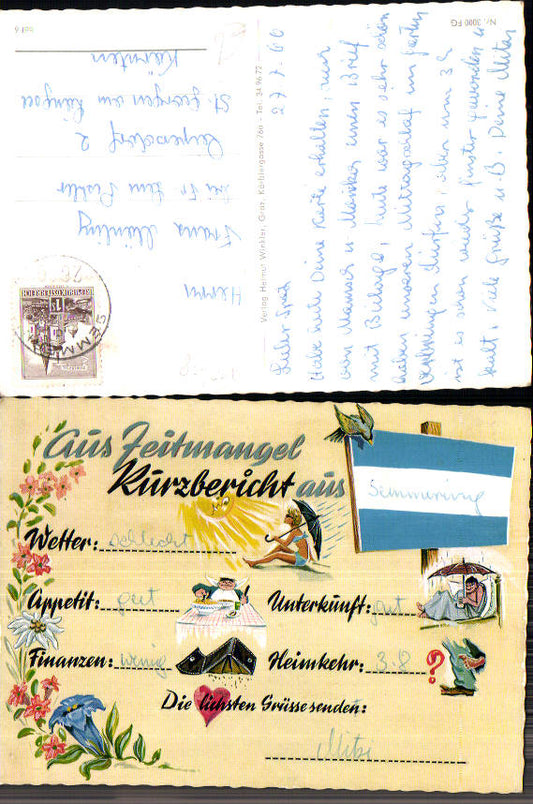 Nr. 3000 FG
Verlag Helmut Winkler, Graz, Karlauergasse 76a - Tel. 34 96 72
27.7.60
Habe heute Deine Karte erhalten, nur
von Mamsch u. einen Brief
mit Beilage, heute war es sehr schön
haben unseren Mittagschlaf im Garten
aber um 3 h
ist es schon wieder finster geworden u.
kalt. Viele Grüße u. B. Deine Mitzi
Herrn
Franz
2
St. Georgen am Längsee
Kärnten
REPUBLIK ÖSTERREICH
SEMMERING
Aus Zeitmangel
Kurzbericht aus
Semmering
Wetter: schlecht
Appetit: gut Unterkunft: gut
Finanzen: wenig Heimkehr: 3.8 ?
Die lichsten Grüsse senden:
Mitzi